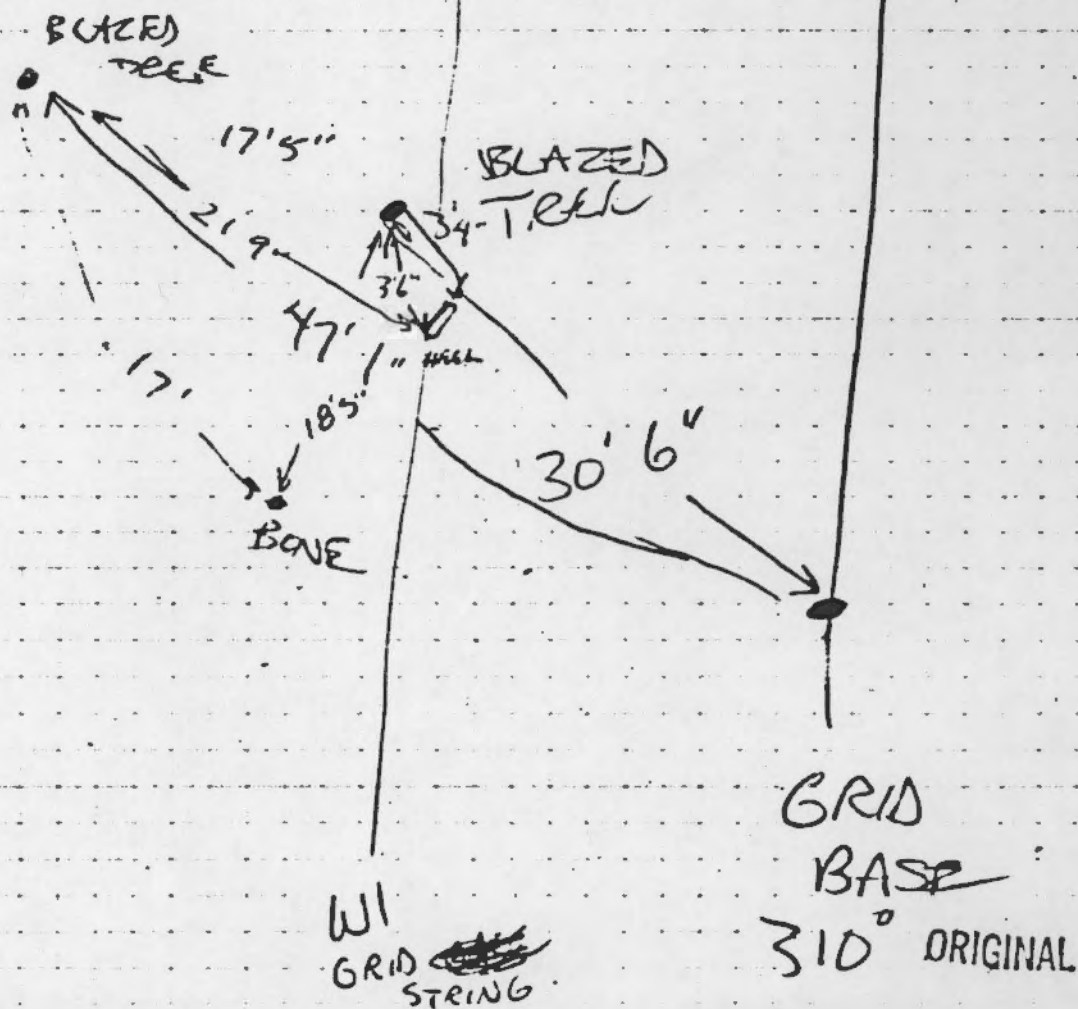 BLAZED
TREE
17'5"
BLAZED
TREE
3'4"
21'9"
3'6"
47'
1" HEEL
17'
18'5"
30' 6"
BONE
GRID
BASE
310° ORIGINAL
W1
GRID
STRING